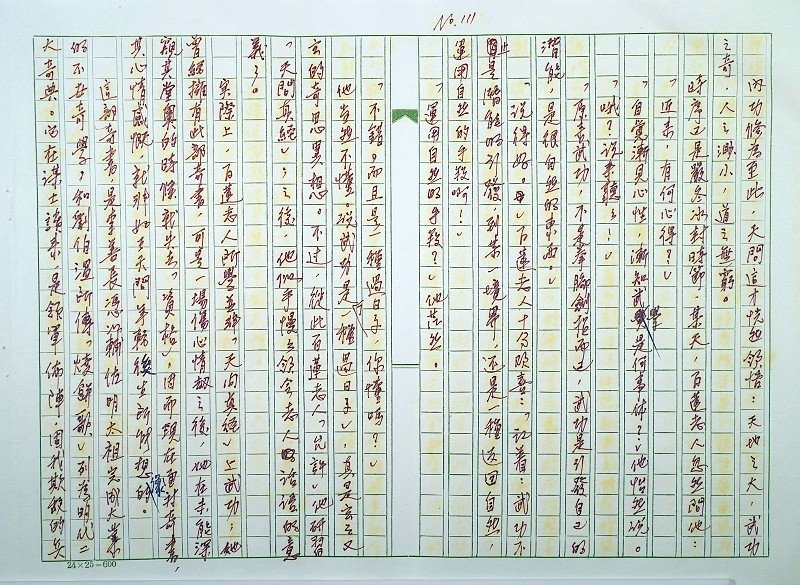 No. 111
內功修為至此，天問這才恍然領悟：天地之大，武功
之奇，人之渺小，道之無窮。
時序已是嚴冬冰封時節，某天，百蓮老人忽然問他：
「近來，有何心得？」
「自覺漸見心性，漸知武學是何事体？」他怡然說。
「哦？說來聽聽！」
「原來武功，不是拳腳劍指而已，武功是引發自己的
潛能，是很自然的東西。」
「說得好。」百蓮老人十分欣喜：「記着：武功不
止是潛能的引發，到某一境界，還是一種返回自然，
運用自然的手段啊！」
「運用自然的手段？」他茫然。
「不錯。而且是一種過日子，你懂嗎？」
他當然不懂。說武功是一種「過日子」，真是玄之又
玄的奇思異想。不过，從此百蓮老人「允許」他研習
「天問真經」；之後，他似乎慢慢領會老人話語的意
義了。
實際上，百蓮老人所學並非「天問真經」上武功；她
曾經擁有此部奇書，可是一場傷心情劫之後，她在未能深
窺其堂奧的時候就失去「資格」，因而現在重對奇書，
其心情感慨，就非如天問年輕後生所能想像的。
這部奇書是李善長憑以輔佐明太祖完成大業
的不在奇學，和劉伯溫所傳「燒餅歌」列為明代二
大奇典。它在謀士讀來是領軍佈陣，困敵欺敵的兵
24×25=600